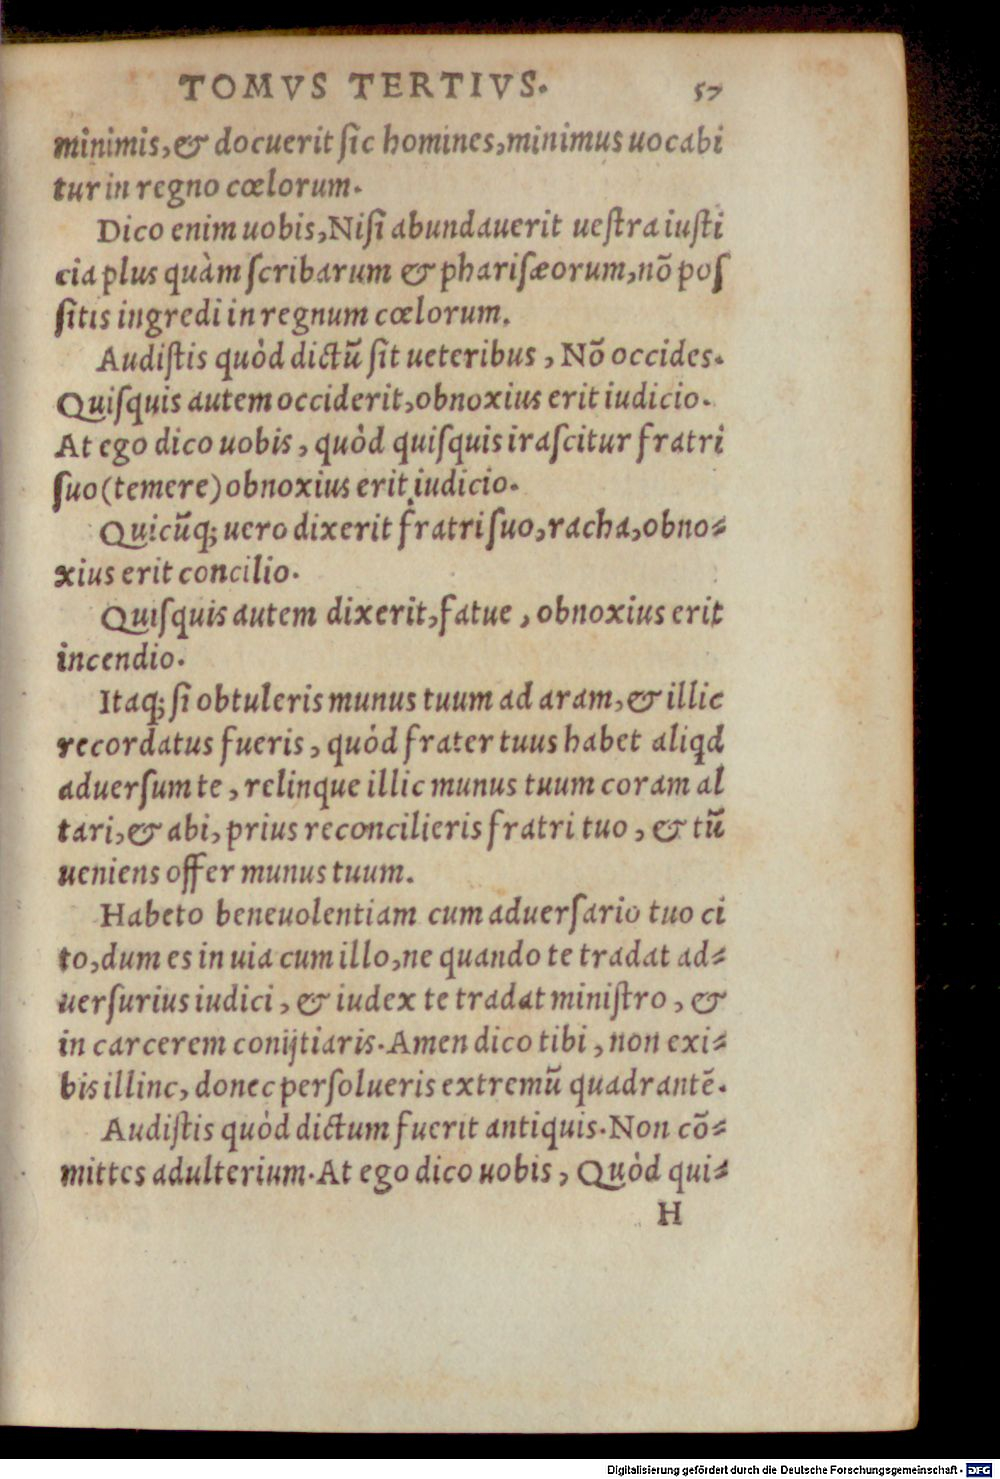 TOMVS TERTIVS. 57
minimis, & docuerit ſic homines, minimus uocabi
tur in regno cœlorum.
Dico enim uobis, Niſi abundauerit ueſtra iuſti
cia plus quàm ſcribarum & phariſæorum, nõ poſ
ſitis ingredi in regnum cœlorum.
Audiſtis quòd dictũ ſit ueteribus, Nõ occides.
Quiſquis autem occiderit, obnoxius erit iudicio.
At ego dico uobis, quòd quiſquis iraſcitur fratri
ſuo (temere) obnoxius erit iudicio.
Quicũq; uero dixerit fratri ſuo, racha, obno-
xius erit concilio.
Quiſquis autem dixerit, fatue, obnoxius erit
incendio.
Itaq; ſi obtuleris munus tuum ad aram, & illic
recordatus fueris, quòd frater tuus habet aliqd
aduerſum te, relinque illic munus tuum coram al
tari, & abi, prius reconcilieris fratri tuo, & tũ
ueniens offer munus tuum.
Habeto beneuolentiam cum aduerſario tuo ci
to, dum es in uia cum illo, ne quando te tradat ad-
uerſurius iudici, & iudex te tradat miniſtro, &
in carcerem conijtiaris. Amen dico tibi, non exi-
bis illinc, donec perſolueris extremũ quadrantẽ.
Audiſtis quòd dictum fuerit antiquis. Non cõ-
mittes adulterium. At ego dico uobis, Quòd qui-
H
Digitalisierung gefördert durch die Deutsche Forschungsgemeinschaft - DFG